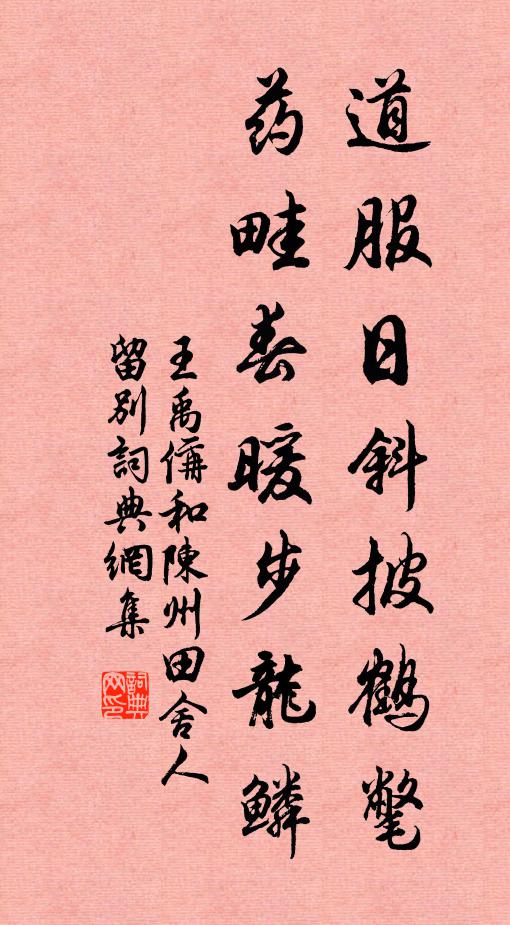 道服日斜披鶴氅
药畦春暖步龍鱗
王禹偁和陳州田舍人
留別詞典網集
詞典
网印